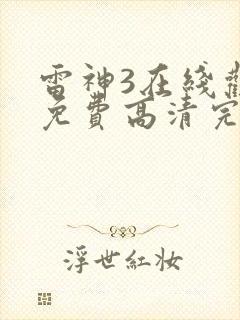 雷神3在线
免费高清完
浮世紅妝